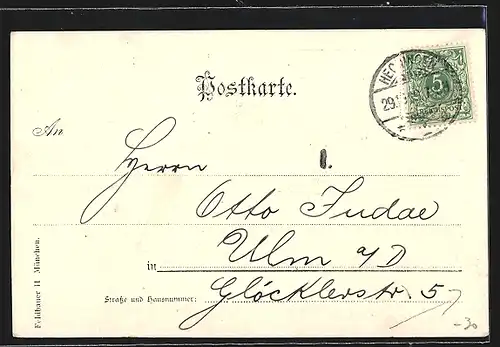 Postkarte.
HECHINGEN
29
5
An
Herrn 1.
Otto Judae
in Ulm a/D
Straße und Hausnummer: Glöcklerstr. 5
Feldbauer 11 München.
-30